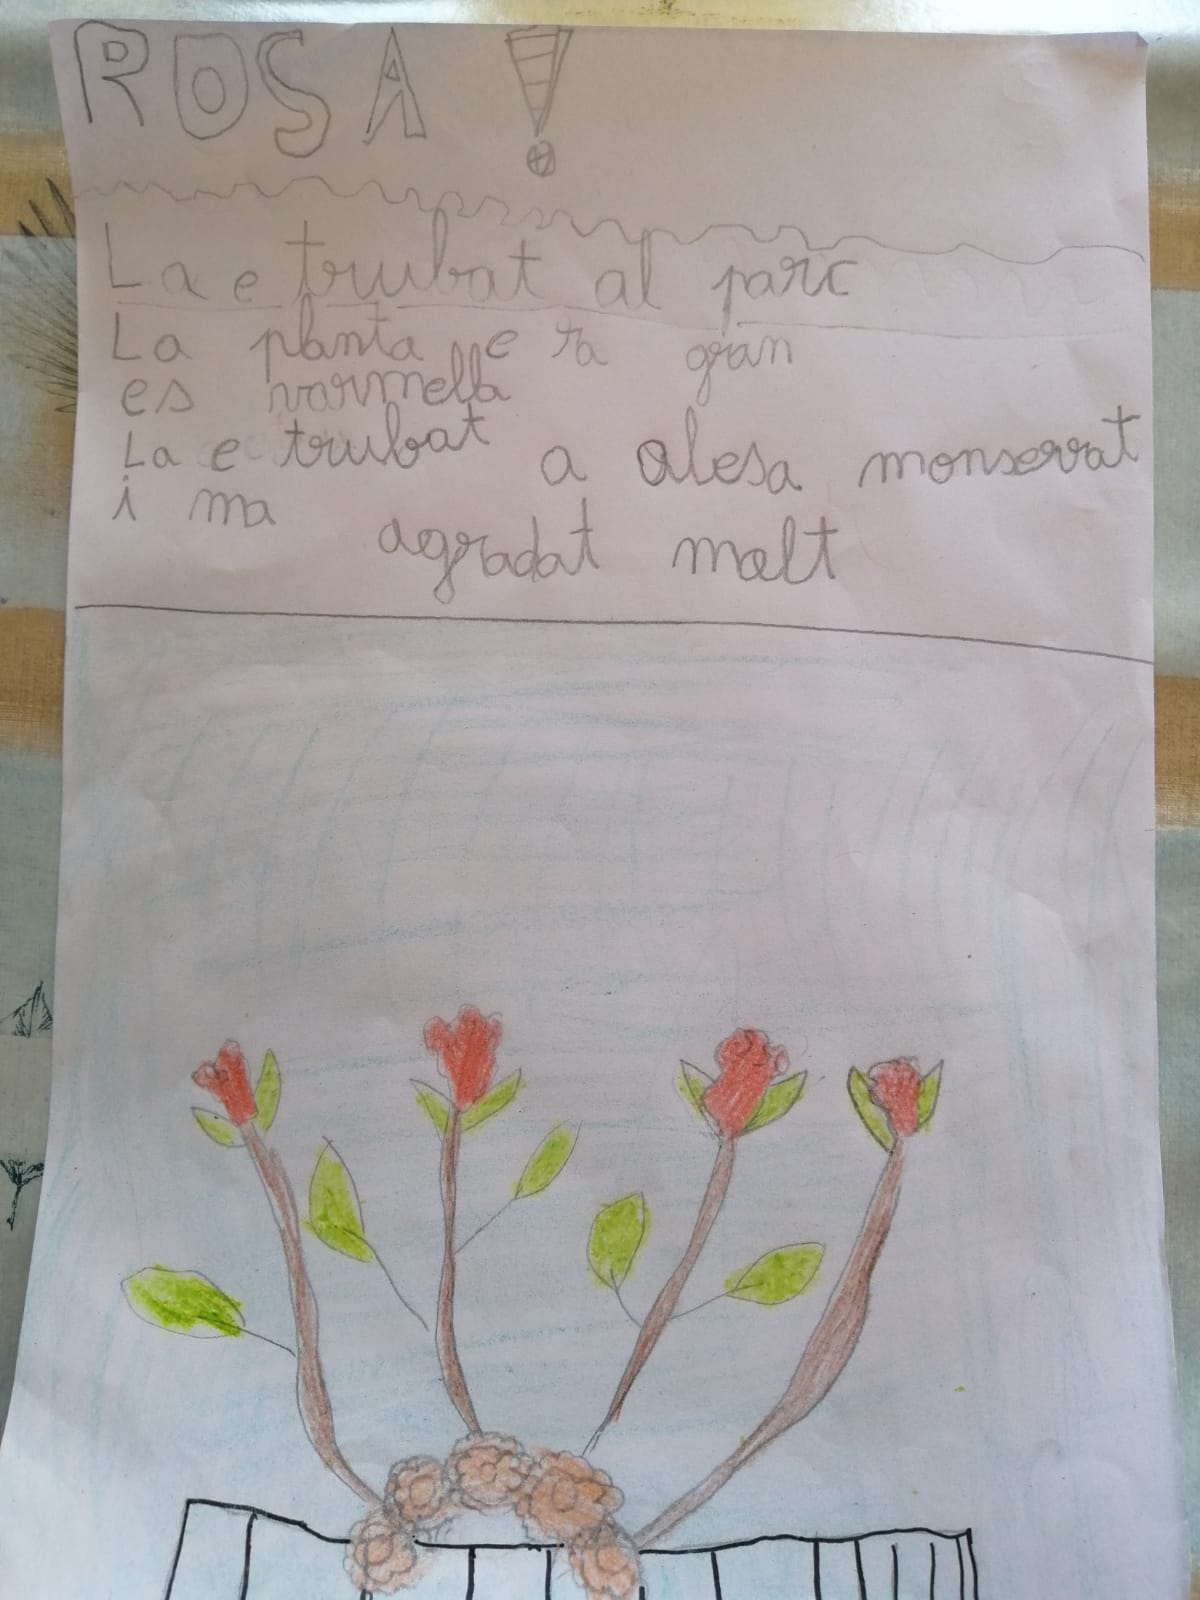 ROSA!
La e trubat al parc
La planta e ra gran
es varmella
La e trubat a olesa monserrat
i ma agradat molt